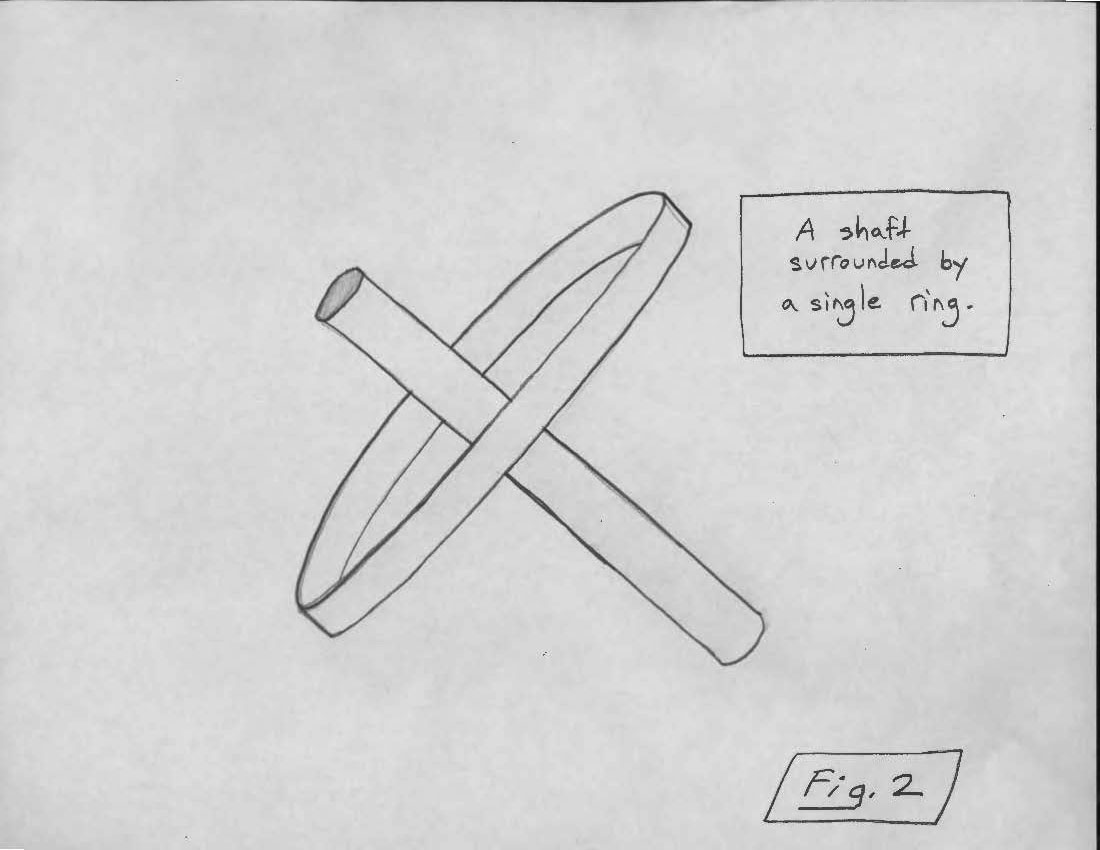 A shaft
surrounded by
a single ring.
Fig. 2